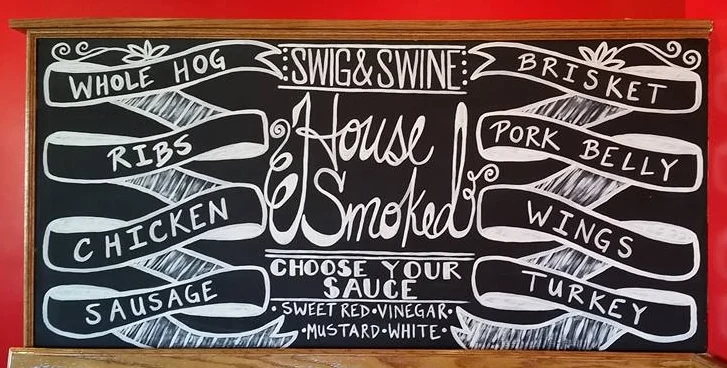 WHOLE HOG
RIBS
CHICKEN
SAUSAGE
SWIG&SWINE
House
Smoked
CHOOSE YOUR
SAUCE
•SWEET RED•VINEGAR•
•MUSTARD•WHITE•
BRISKET
PORK BELLY
WINGS
TURKEY